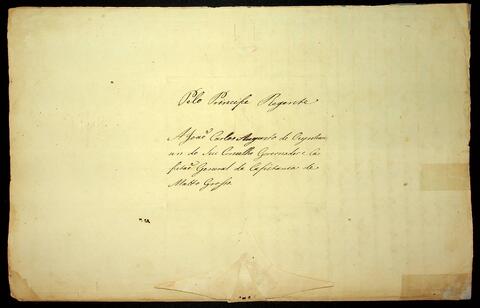 Pelo Principe Regente
A Joaõ Carlos Augusto de Oeynhau
sen do Seu Conselho Governador e Ca
pitaõ General da Capitania de
Matto Grosso